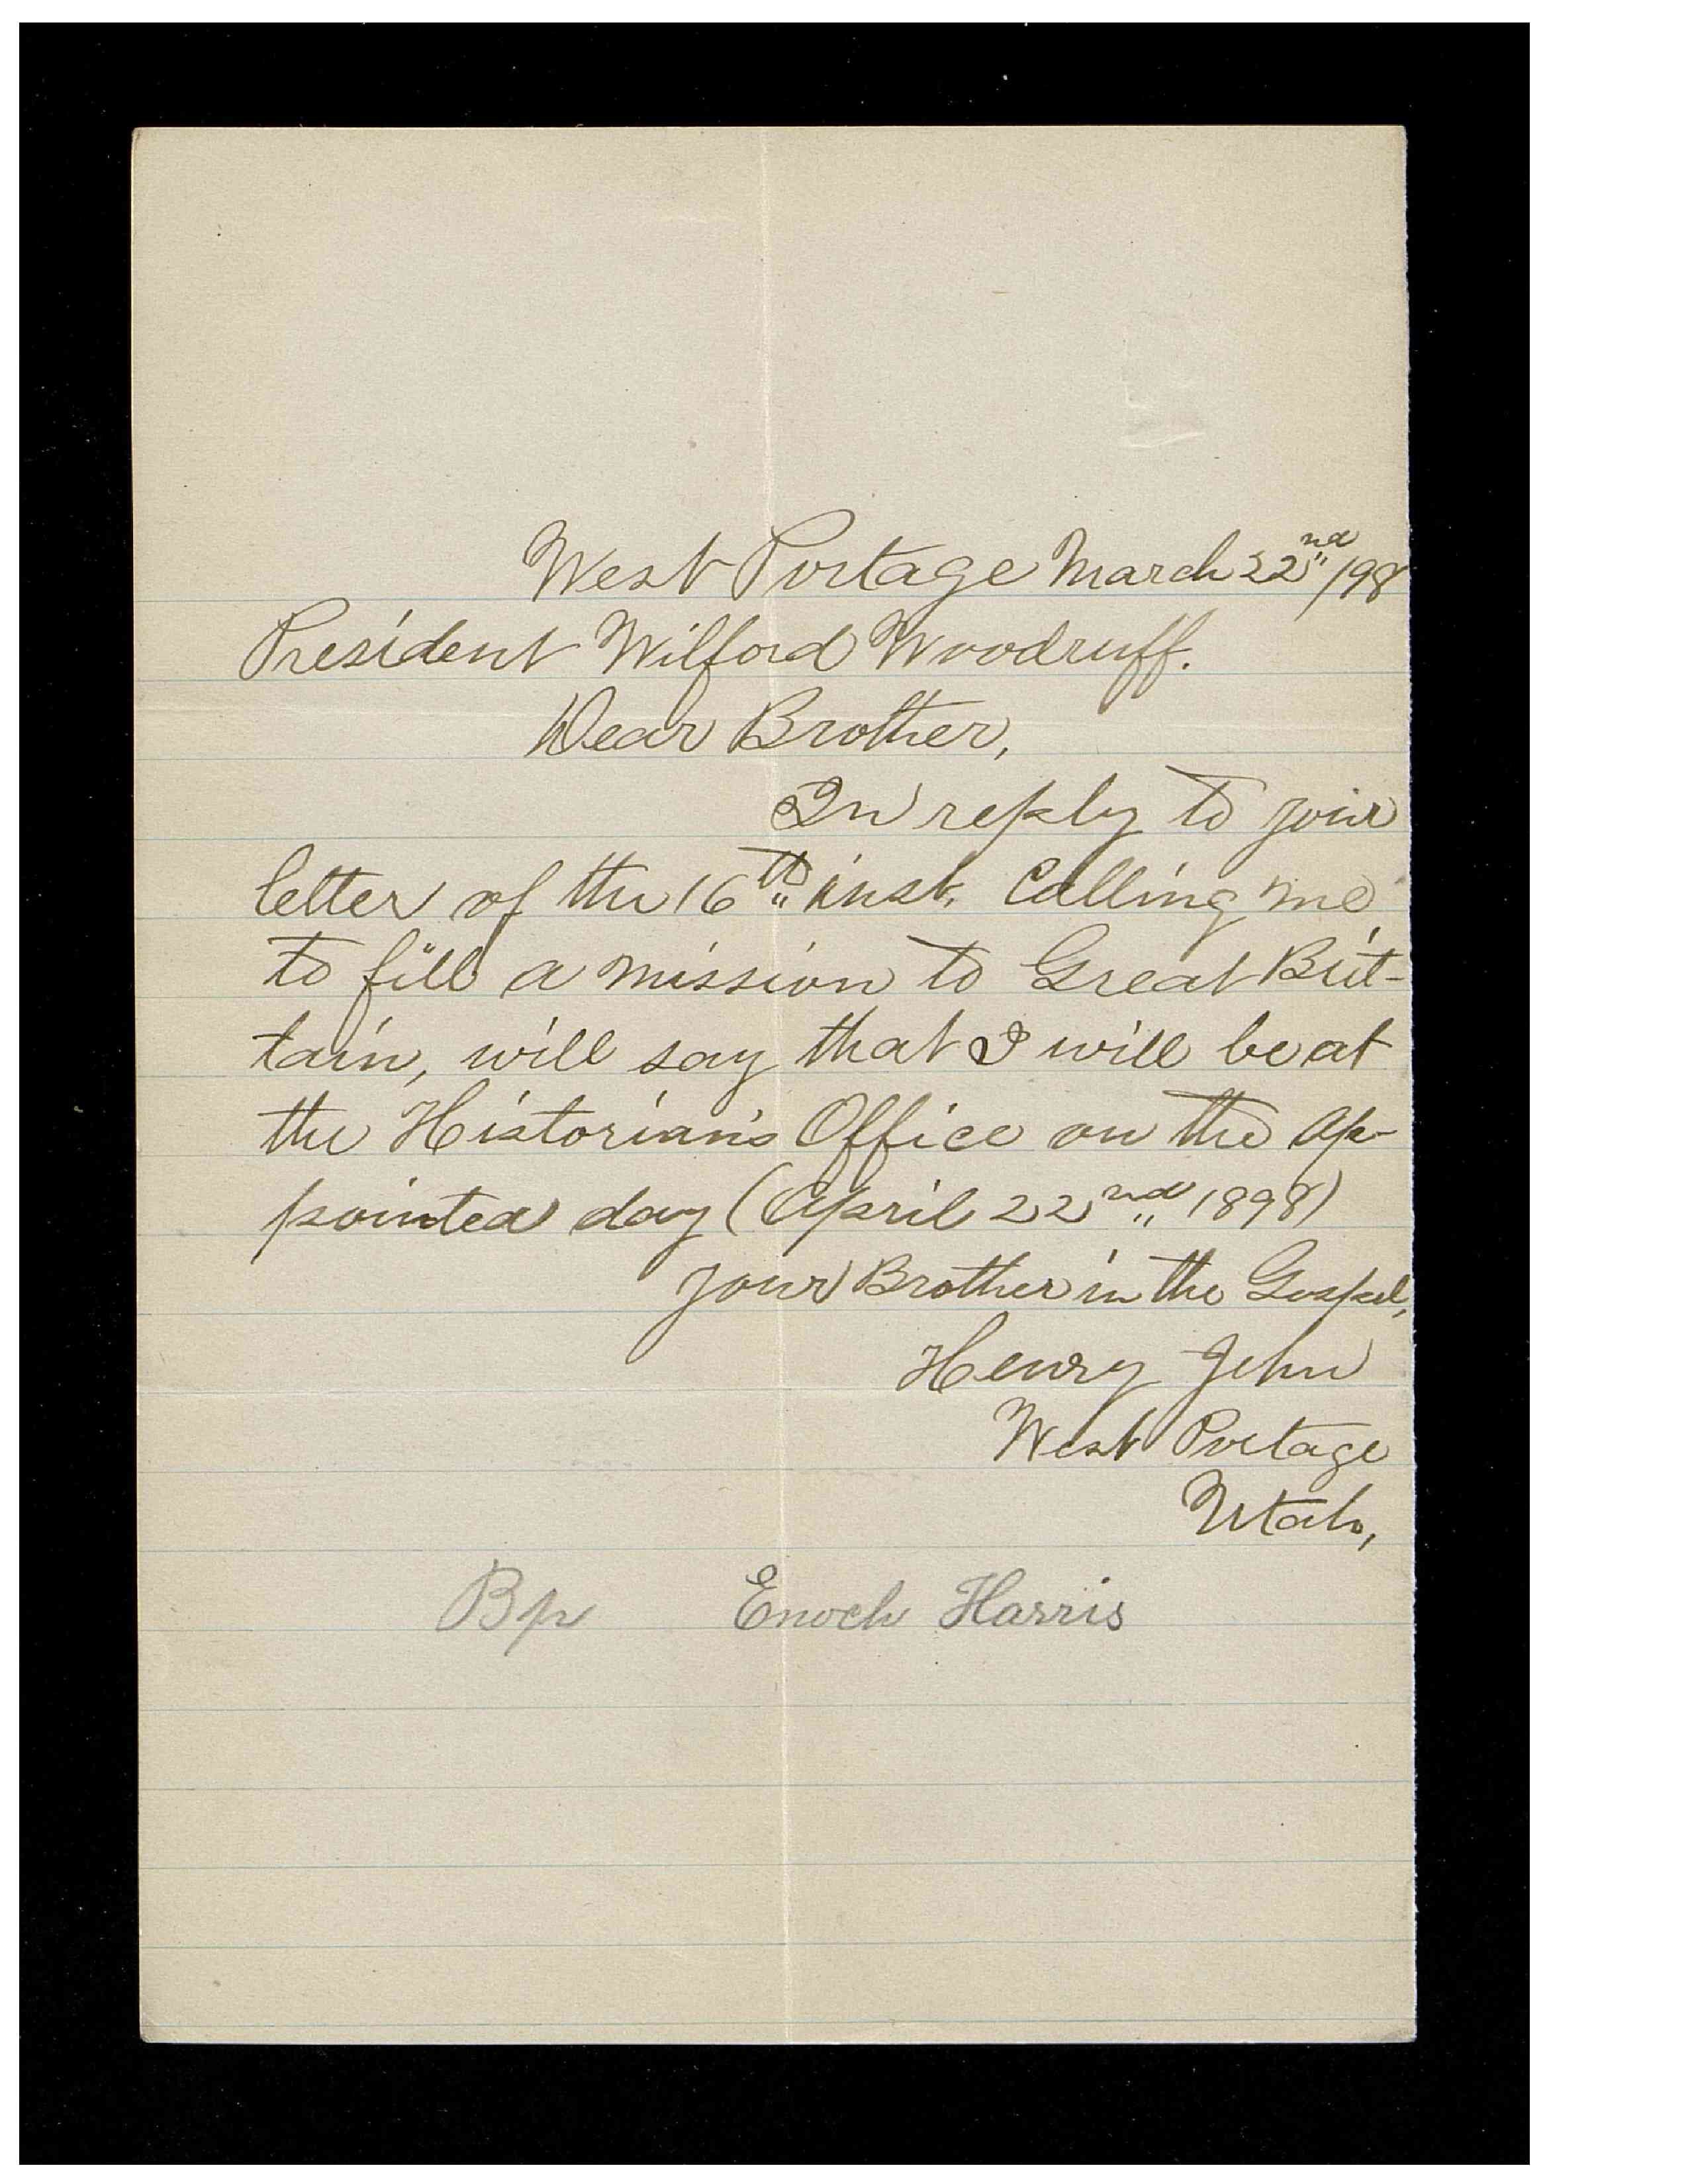 West Portage March 22nd /98
President Wilford Woodruff.
Dear Brother,
In reply to your
letter of the 16th inst. Calling me
to fill a mission to Great Brit-
tain, will say that I will be at
the Historian's Office on the ap-
pointed day (April 22nd 1898)
Your Brother in the Gospel,
Henry John
West Portage
Utah,
Bp Enoch Harris